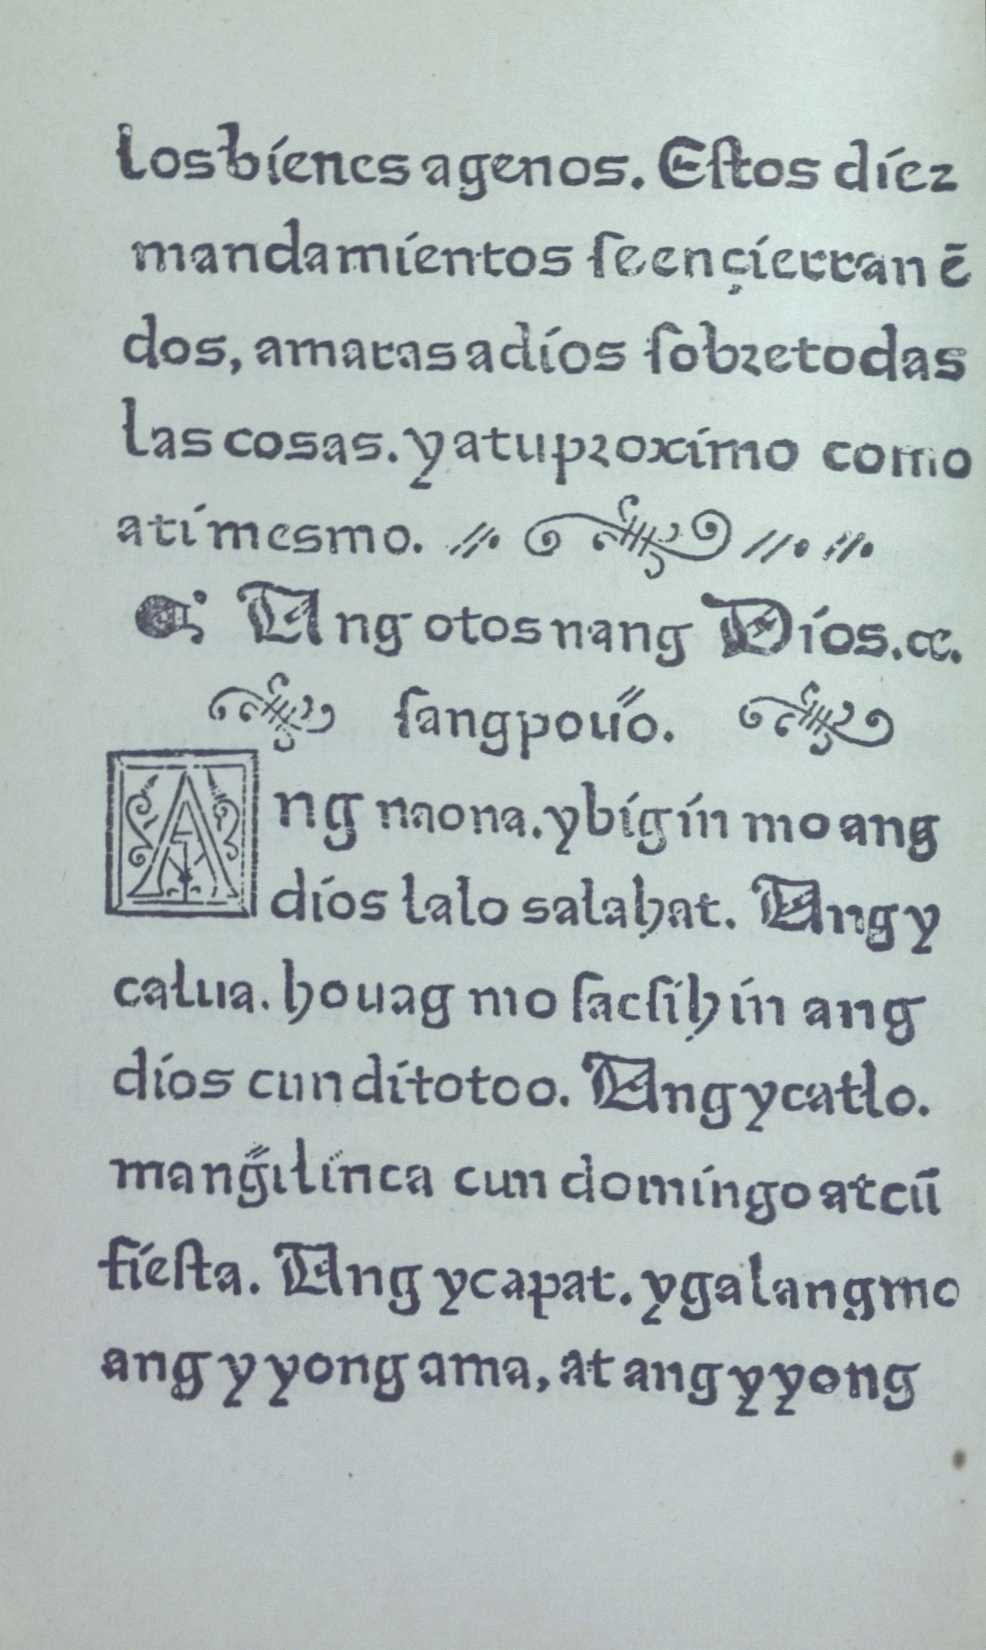 los bienes agenos. Estos diez
mandamientos se ençierran ẽ
dos, amaras a dios sobre todas
las cosas. y a tu proximo como
a ti mesmo.
Ang otos nang Dios. ⁊c.
sang pouo.
Ang naona. ybigin mo ang
dios lalo sa lahat. Ang y
calua. houag mo sacsihin ang
dios cun di totoo. Ang ycatlo.
mangilin ca cun domingo at cũ
fiesta. Ang ycapat. ygalang mo
ang yyong ama, at ang yyong